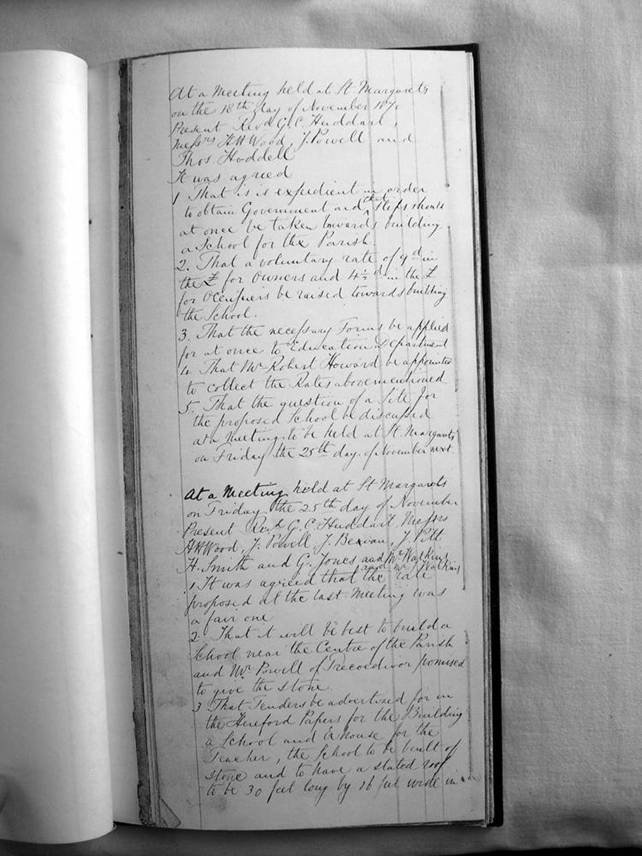 At a Meeting held at St. Margarets
on the 18th day of November 1870
Present Revd G.C. Huddart,
Messrs H W Wood, J. Powell and
Thos. Hoddell
It was agreed
1 That is is expedient in order
to obtain Government aid that steps should
at once be taken towards building
a School for the Parish.
2. That a voluntary rate of 9d in
the £ for Owners and 4½d in the £
for Occupiers be raised towards building
the School.
3. That the necessary Forms be applied
for at once to Education Department
4. That Mr Robert Howard be appointed
to collect the Rates abovementioned
5. That the question of a Site for
the proposed School be discussed
at a Meeting to be held at St. Margarets
on Friday the 25th day of November next.
At a Meeting held at St Margarets
on Friday the 25th day of November
Present Revd G.C. Huddart, Messrs
H W Wood, J. Powell, J. Bevan, J. Pitt
H. Smith and G. Jones and Mr Watkins
and Mr Watkins
1 It was agreed that the rate
proposed at the last Meeting was
a fair one
2. That it will be best to build a
School near the Centre of the Parish
and Mr Powell of promised
to give the stone.
3 That Tenders be advertised for in
the Hereford Papers for the Building
a School and a house for the
Teacher, the School to be built of
Stone and to have a slated roof
to be 30 feet long by 16 feet wide